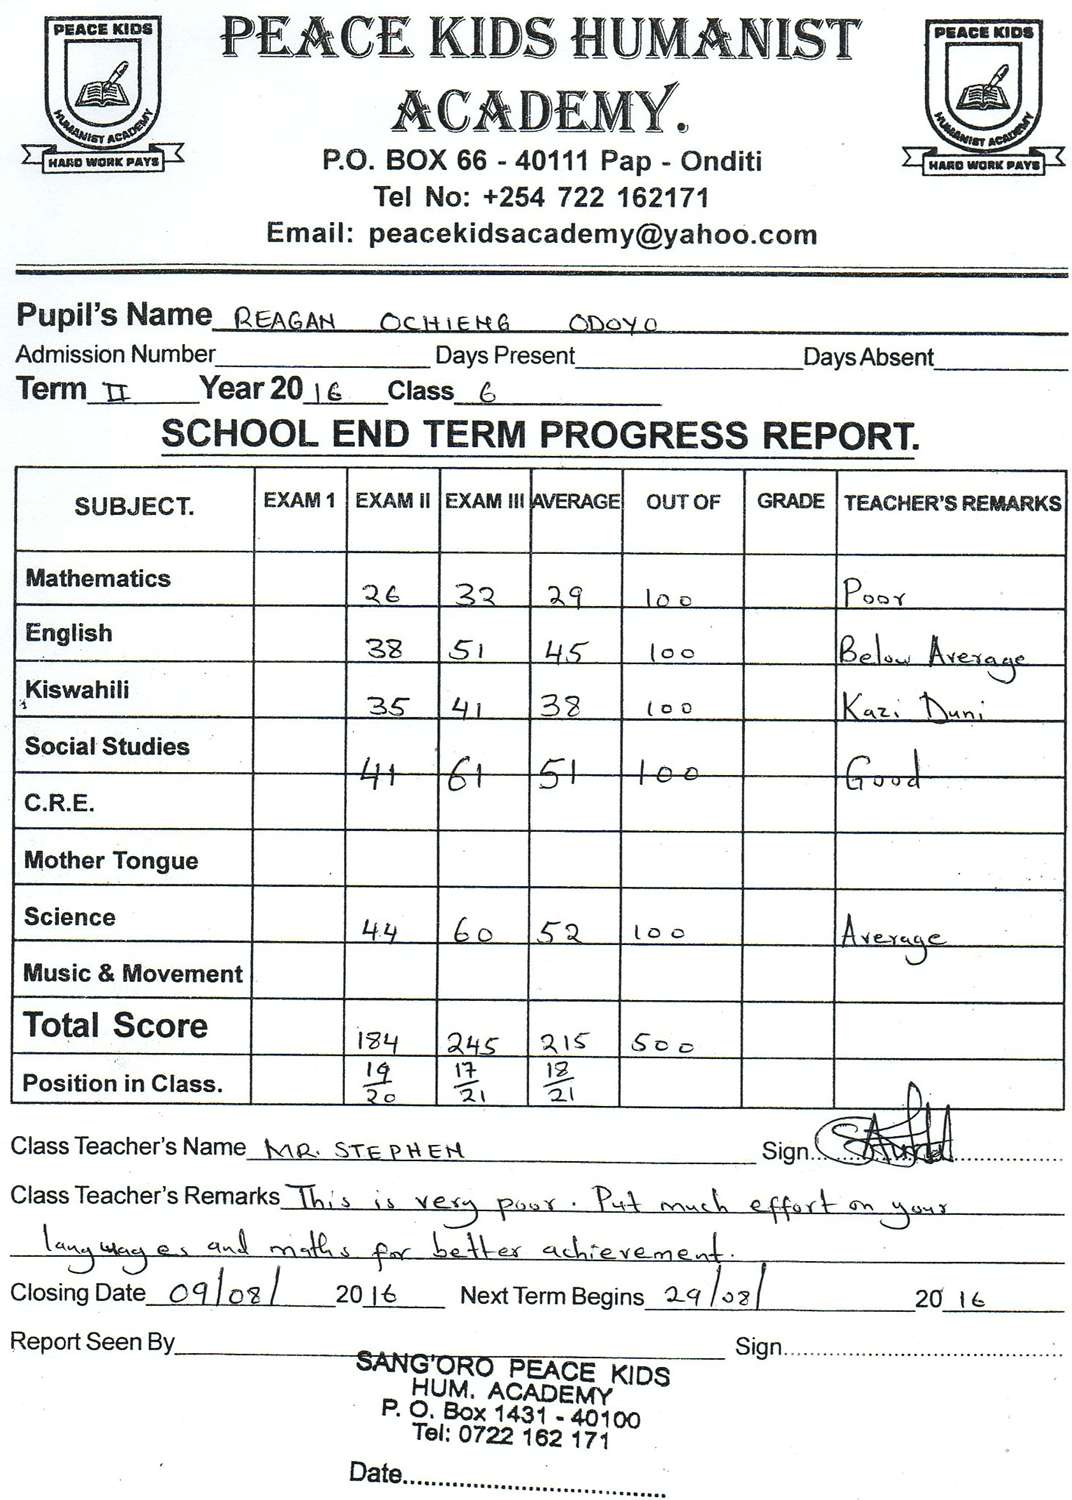 PEACE KIDS
HUMANIST ACADEMY
HARD WORK PAYS
PEACE KIDS HUMANIST
ACADEMY.
PEACE KIDS
HUMANIST ACADEMY
HARD WORK PAYS
P.O. BOX 66 - 40111 Pap - Onditi
Tel No: +254 722 162171
Email: peacekidsacademy@yahoo.com
Pupil's Name REAGAN OCHIENG ODOYO
Admission Number Days Present Days Absent
Term II Year 2016 Class 6
SCHOOL END TERM PROGRESS REPORT.
SUBJECT. EXAM 1 EXAM II EXAM III AVERAGE OUT OF GRADE TEACHER'S REMARKS
Mathematics 26 32 29 100 Poor
English 38 51 45 100 Below Average
Kiswahili 35 41 38 100 Kazi Duni
Social Studies 41 61 51 100 Good
C.R.E.
Mother Tongue
Science 44 60 52 100 Average
Music & Movement
Total Score 184 245 215 500
Position in Class. 19/20 17/21 18/21
Class Teacher's Name MR. STEPHEN Sign
Class Teacher's Remarks This is very poor. Put much effort on your
languages and maths for better achievement.
Closing Date 09/08/ 2016 Next Term Begins 29/08/ 2016
Report Seen By Sign
SANG'ORO PEACE KIDS
HUM. ACADEMY
P. O. Box 1431 - 40100
Tel: 0722 162 171
Date